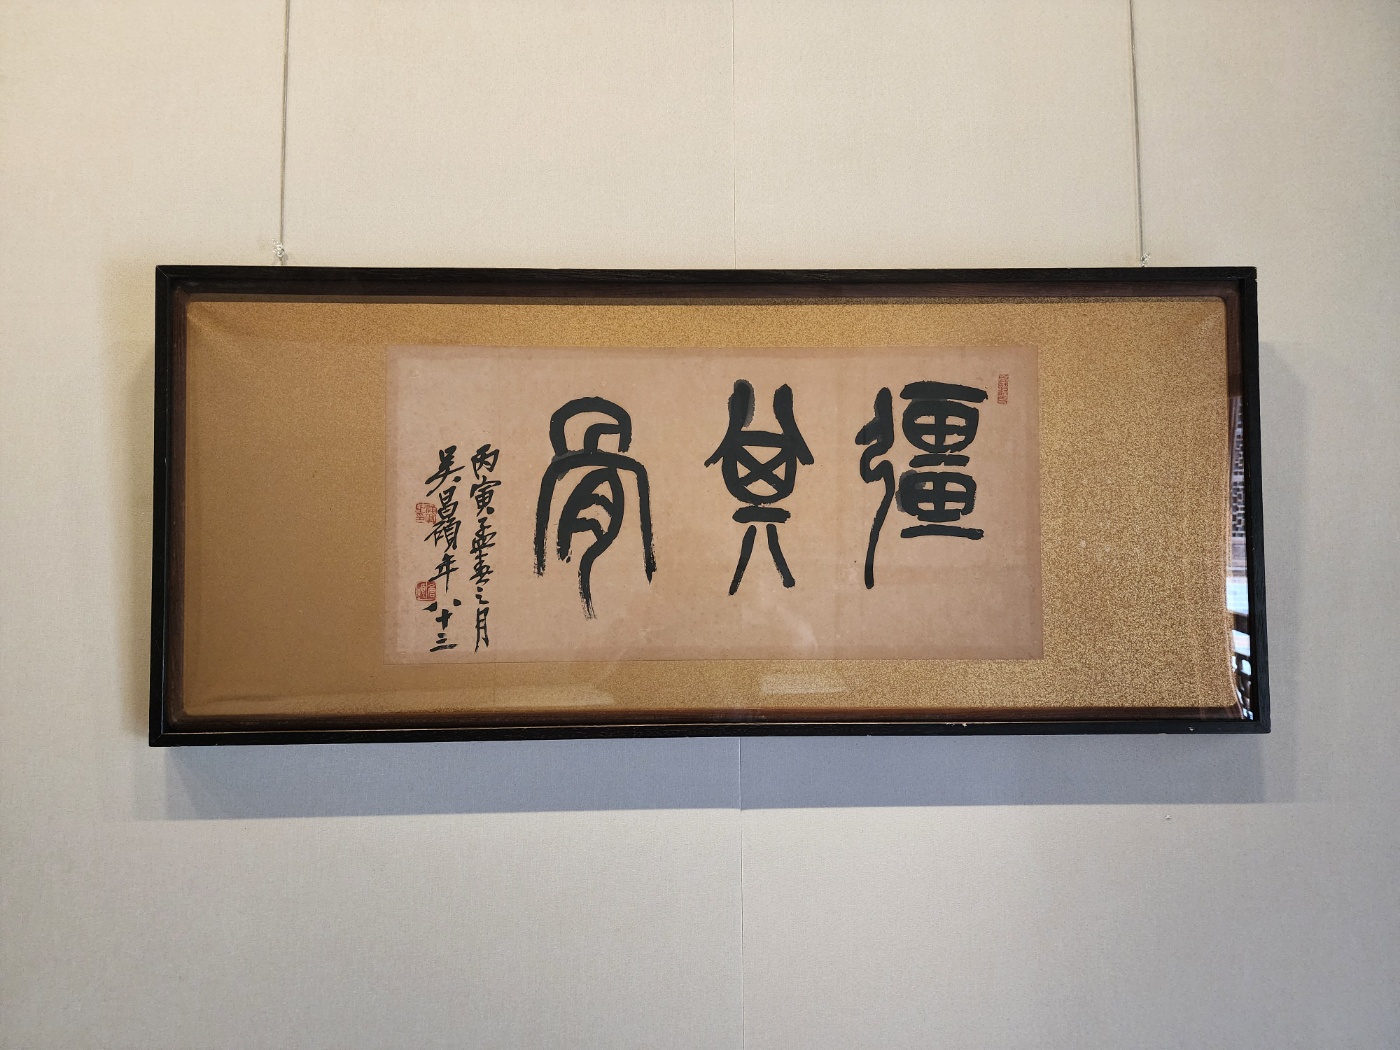 彊其骨
丙寅孟春之月
吴昌碩年八十三